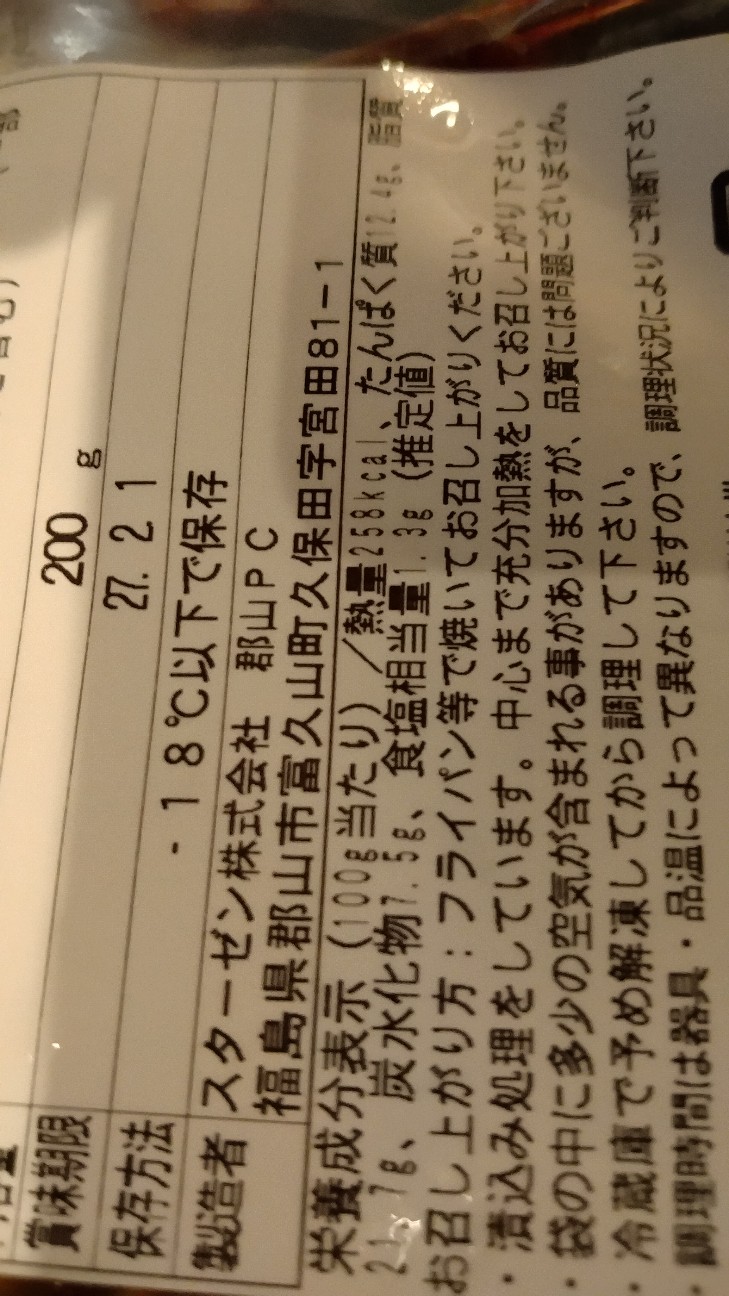 200 g
賞味期限 27. 2. 1
保存方法 -18℃以下で保存
製造者 スターゼン株式会社 郡山PC
福島県郡山市富久山町久保田字宮田81-1
栄養成分表示（100g当たり）／熱量258kcal、たんぱく質12.4g、脂質
21.7g、炭水化物7.5g、食塩相当量1.3g（推定値）
お召し上がり方：フライパン等で焼いてお召し上がりください。
・漬込み処理をしています。中心まで充分加熱をしてお召し上がり下さい。
・袋の中に多少の空気が含まれる事がありますが、品質には問題ございません。
・冷蔵庫で予め解凍してから調理して下さい。
・調理時間は器具・品温によって異なりますので、調理状況によりご判断下さい。